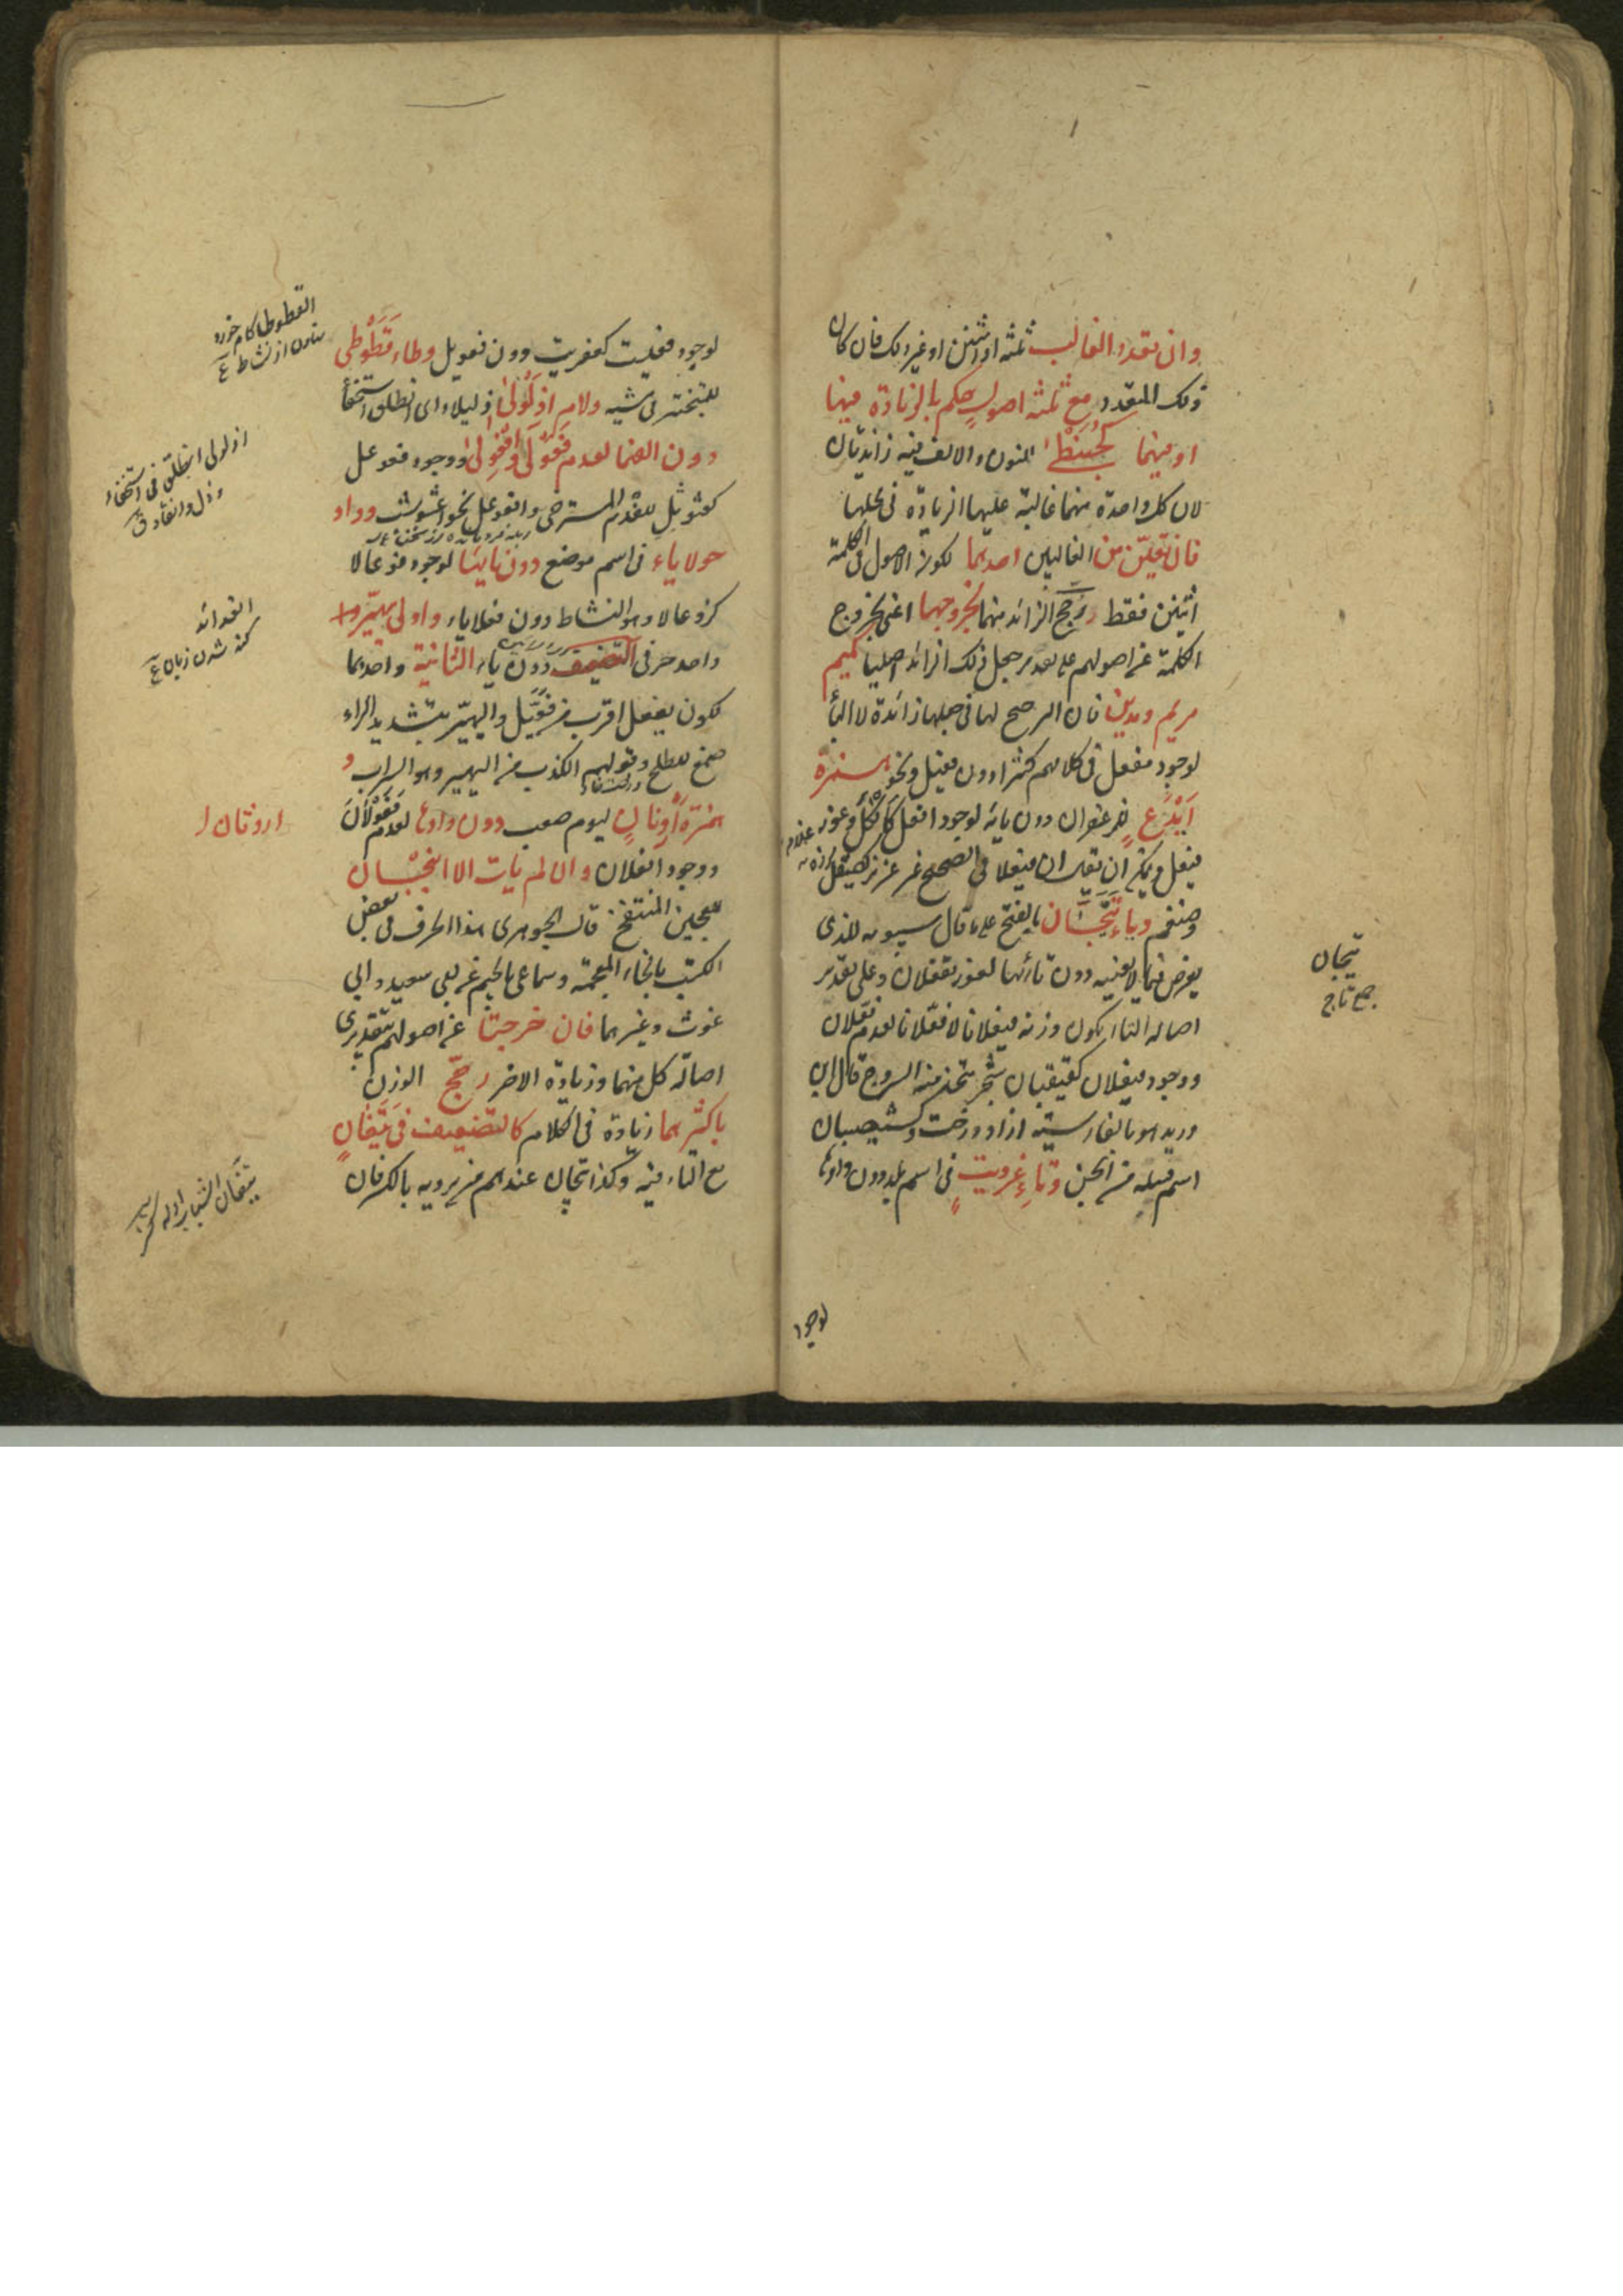 وان تعدد الغالب ثلثه او اثنين او غير ذلك فان كان
ذلك المتعدد مع ثلثه اصول حكم بالزيادة فيها
او فيهما كحبنطا النون والالف فيه زائدتان
لان كل واحدة منهما غالبة عليها الزيادة فى محلها
فان تعين من الغالبين احدهما لكون الاصول فى الكلمة
اثنين فقط رجح الزائد منهما بخروجهما اعنى بخروج
الكلمة عن اصولهم على تقدير جعل ذلك الزائد اصليا كميم
مريم ومدين فان الرجح لها فى جعلها زائدة لا اليأ
لوجود مفعل فى كلامهم كثيرا دون فعيل ونحو همزة
ايدع للزعفران دون يائه لوجود افعل كافكل وعوز
فيعل ويمكن ان يقال ان فيعلا فى الصحيح غير عزيز كصيقل
وضيغم وياء تيجان بالفتح على ما قال سيبويه للذى
يعرض فيما لا يعنيه دون تائها لعوز تفعلان وعلى تقدير
اصالة التاا يكون وزنه فيعلانا لا فعلانا لعدم فعلان
ووجود فيعلان كقيقبان شجر يتخذ منه السروج قال ابن
دريد هو بالفارسية ازاد درخت وكشيصبان
اسم قبيلة من الجن وتاء غرويت فى اسم بلد دون واوها
لوجود
تيجان
جمع تاج
لوجود فعليت كعفريت دون فعويل وطاء قطوطى
للمتبختر فى مشيه ولام اذلولى اذليلاء اى انطلق استخفأ
دون الفهما لعدم فعولى وافعولى ووجود فعوعل
كعثوثل للفدم المسترخى وافعوعل نحو اعشوشب وواو
حولاياء فى اسم موضع دون يائها لوجود فوعالا
كزوعالا وهو النشاط دون فعلاياء واولى يهير و
واحد حرفى التضعيف دون ياء الثانية واحدهما
لكون يفعل اقرب من فعيل واليهير بتشديد الراء
صمغ للطلح وقولهم الكذب من اليهير وهو السراب و
همزة ارونان ليوم صعب دون واوها لعدم فعولان
ووجود افعلان وان لم يات الا انبجان
للعجين المنتفخ قال الجوهرى هذا الحرف فى بعض
الكتب بالخاء المعجمة وسماعى بالجيم عن ابى سعيد وابى
غوث وغيرهما فان خرجتا عن اصولهم بتقديرى
اصالة كل منهما وزيادة الاخر رجح الوزن
باكثرهما زيادة فى الكلام كالتضعيف فى تيفان
مع التاء فيه وكذا تيجان عندهم من يرويه بالكسر فان
القطوطا كام خرد
نهادن از نشاط
اذلولى انطلق فى استخفاء
وذل وانقاد ق
ارونان